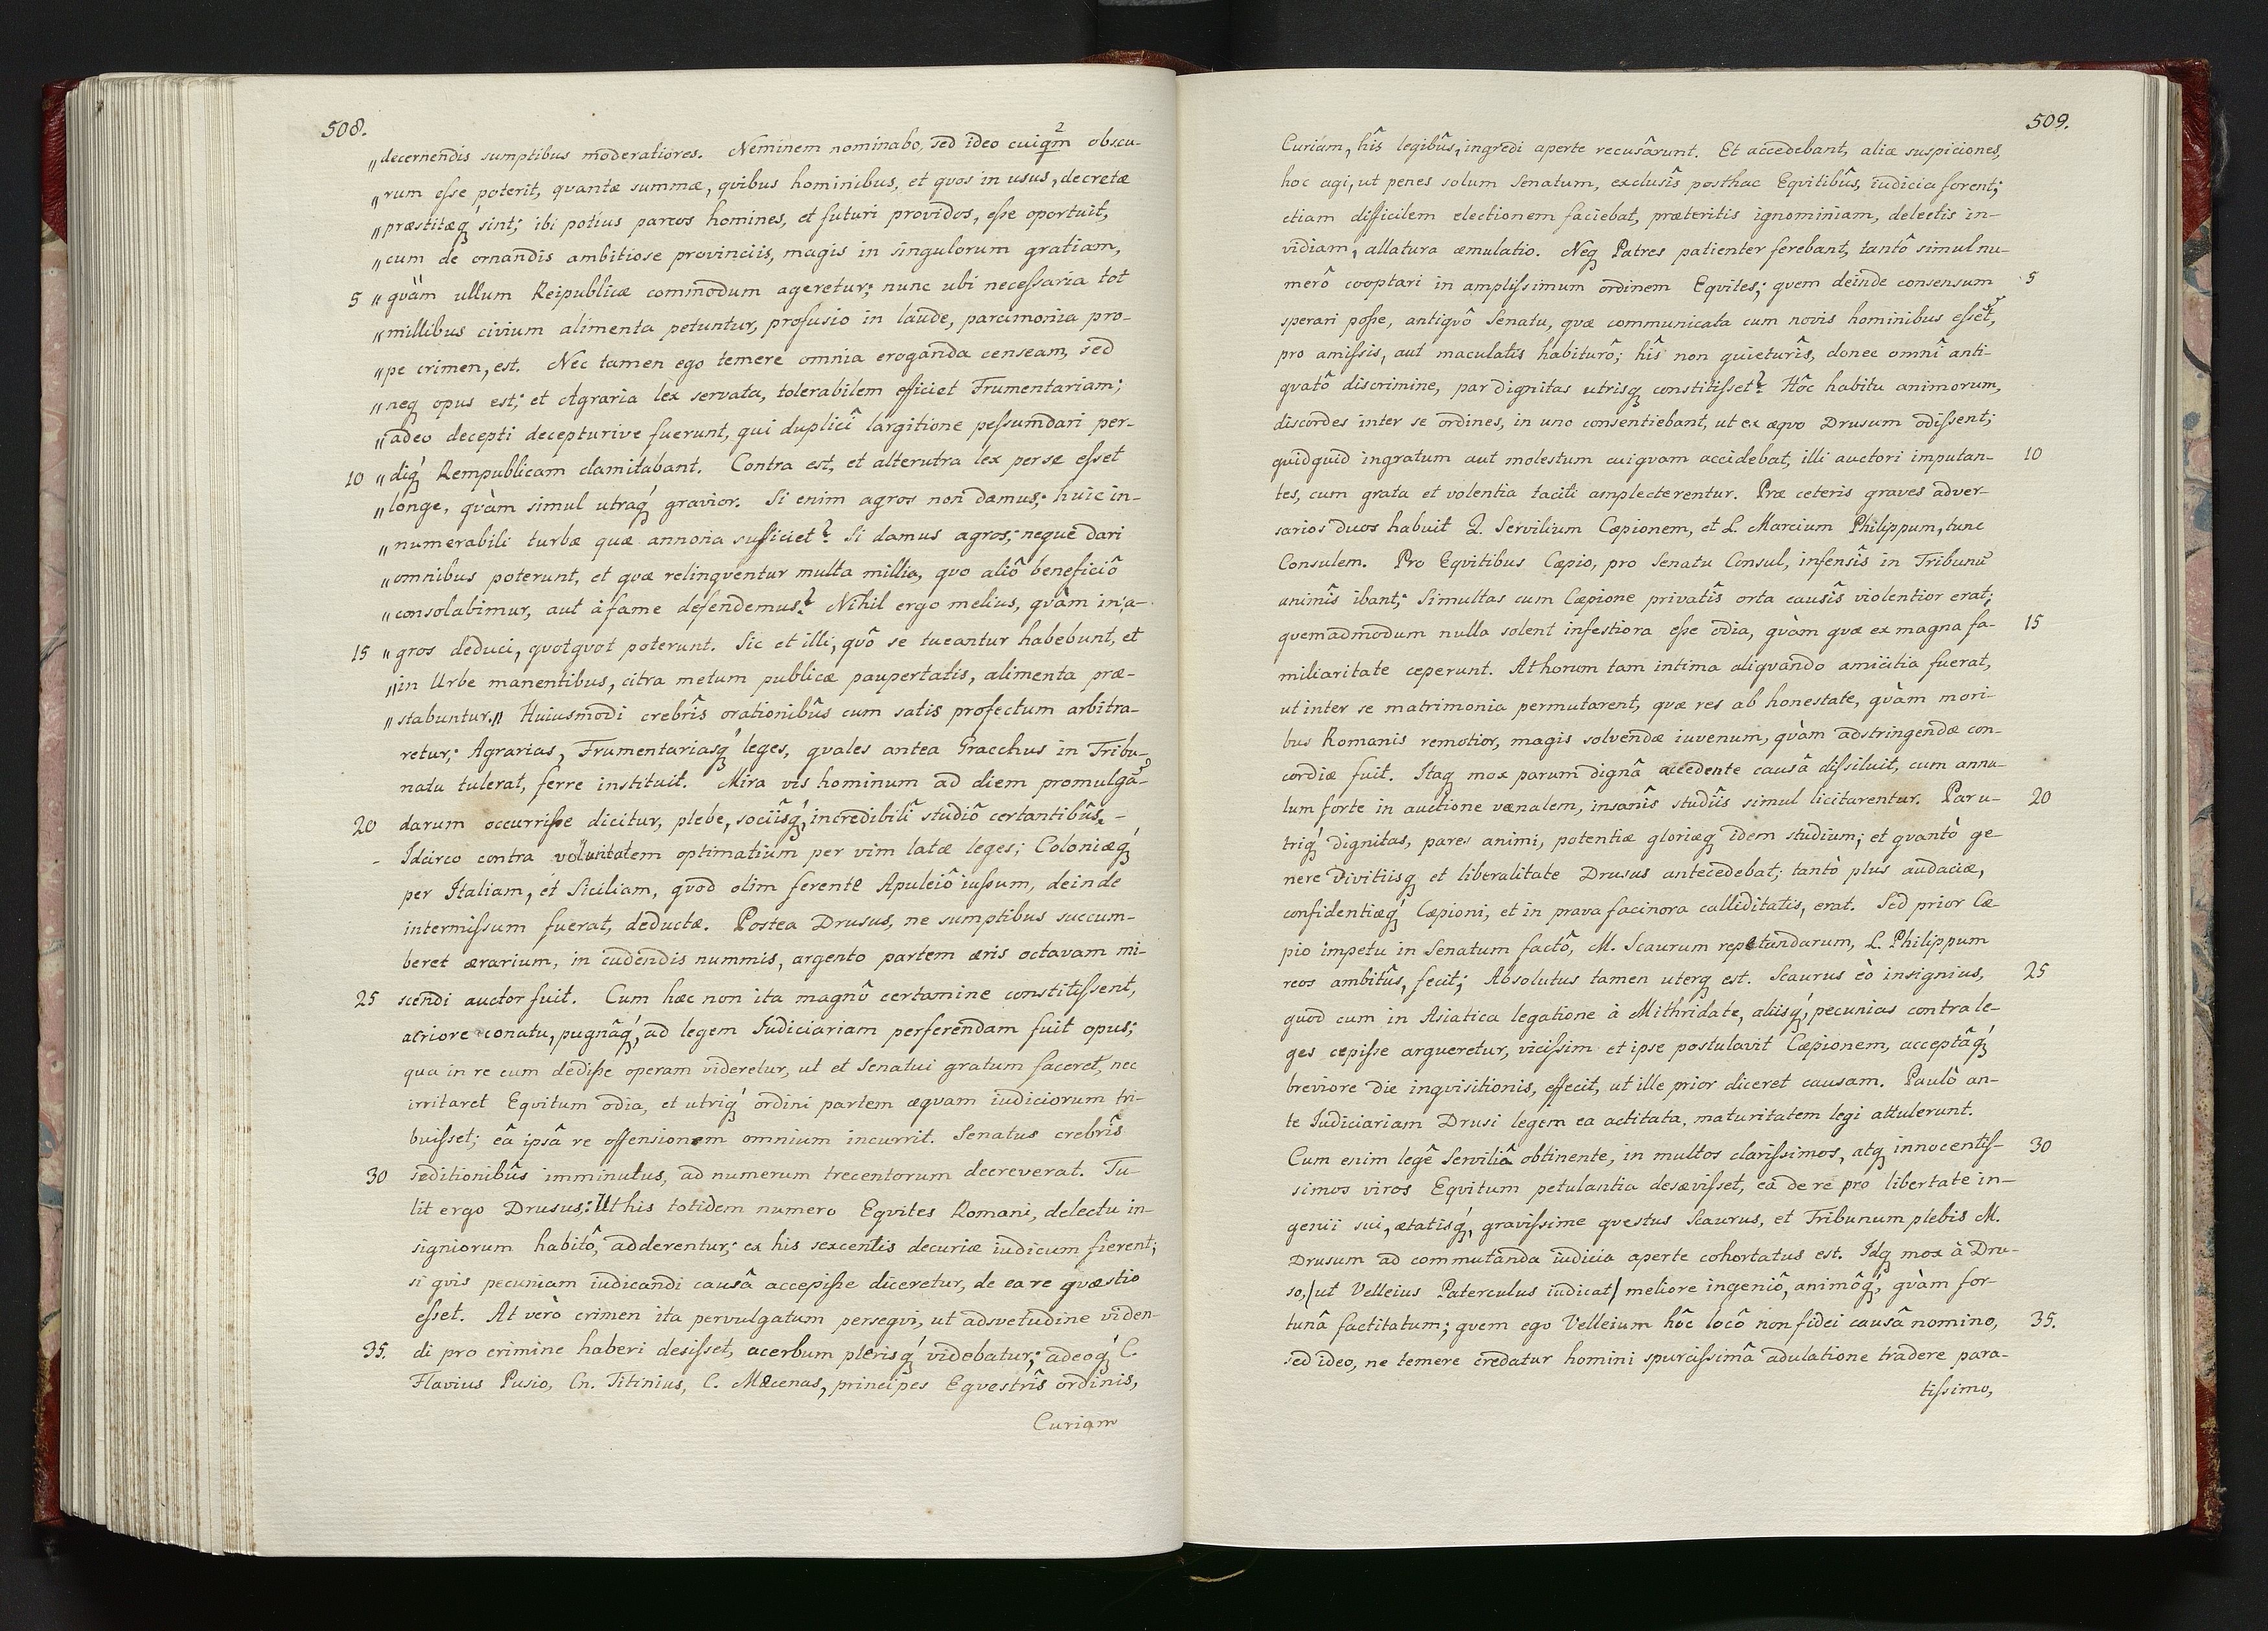 508.
„decernendis sumptibus moderatiores. Neminem nominabo, sed ideo cuiqm̄ obscu-
„rum eſse poterit, quantæ summæ, quibus hominibus, et quos in usus, decretæ
„præstitæq́ sint; ibi potius parcos homines, et futuri providos, eſse oportuit,
„cum de ornandis ambitiose provinciis, magis in singulorum gratiam,
5 „qvàm ullum Reipublicæ commodum ageretur; nunc ubi neceſsaria tot
„millibus civium alimenta petuntur, profusio in laude, parcimonia pro-
„pe crimen, est. Nec tamen ego temere omnia eroganda censeam, sed
„neq opus est; et Agraria lex servata, tolerabilem efficiet Frumentariam;
„adeo decepti decepturive fuerunt, qui duplicî largitione peſsumdari per-
10 „diq́ Rempublicam clamitabant. Contra est, et alterutra lex per se eſset
„longe, qvàm simul utraq́ gravior. Si enim agros non damus; huic in-
„numerabili turbæ quæ annona sufficiet? Si damus agros; neque dari
„omnibus poterunt, et qvæ relinqventur multa millia, qvo aliô beneficiô
„consolabimur, aut à fame defendemus? Nihil ergo melius, qvàm in a-
15 „gros deduci, qvotqvot poterunt. Sic et illi, qvô se tueantur habebunt, et
„in Urbe manentibus, citra metum publicæ paupertatis, alimenta præ-
„stabuntur.„ Huiusmodi crebrîs orationibûs cum satis profectum arbitra-
retur; Agrarias, Frumentariasq́ leges, qvales antea Gracchus in Tribu-
natu tulerat, ferre instituit. Mira vis hominum ad diem promulgâ-
20 darum occurriſse dicitur, plebe, sociîsq́, incredibilî studiô certantibûs. -
- Idcirco contra voluntatem optimatium per vim latæ leges; Coloniæq́
per Italiam, et Siciliam, qvod olim ferente Apuleiô iuſsum, deinde
intermiſsum fuerat, deductæ. Postea Drusus, ne sumptibus succum-
beret ærarium, in cudendis nummis, argento partem æris octavam mi-
25 scendi auctor fuit. Cum hæc non ita magnô certamine constitiſsent,
acriore conatu, pugnâq́, ad legem Iudiciariam perferendam fuit opus;
qua in re cum dediſse operam videretur, ut et Senatui gratum faceret, nec
irritaret Eqvitum odia, et utriq́ ordini partem æqvam iudiciorum tri-
buiſset; eâ ipsâ re offensionem omnium incurrit. Senatus crebrîs
30 seditionibûs imminutus, ad numerum trecentorum decreverat. Tu-
lit ergo Drusus; Ut his totidem numero Eqvites Romani, delectu in-
signiorum habitô, adderentur; ex his sexcentis decuriæ iudicum fierent;
si qvis pecuniam iudicandi causâ accepiſse diceretur, de ea re qvæstio
eſset. At verò crimen ita pervulgatum perseqvi, ut adsvetudine viden-
35. di pro crimine haberi desiſset, acerbum plerisq́ videbatur; adeoq́ C.
Flavius Pusio, Cn. Titinius, C. Mæcenas, principes Eqvestrîs ordinis,
Curiam
509.
Curiam, hîs legibûs, ingredi aperte recusârunt. Et accedebant, aliæ suspiciones,
hoc agi, ut penes solum Senatum, exclusîs posthac Eqvitibûs, iudicia forent;
etiam difficilem electionem faciebat, præteritis ignominiam, delectis in-
vidiam, allatura æmulatio. Neq Patres patienter ferebant, tantô simul nu-
merô cooptari in ampliſsimum ordinem Eqvites; qvem deinde consensum 5
sperari poſse, antiqvô Senatu, qvæ communicata cum novis hominibus eſset,
pro amiſsis, aut maculatis habiturô; hîs non qvieturîs, donec omnî anti-
qvatô discrimine, par dignitas utrisq constitiſset? Hôc habitu animorum,
discordes inter se ordines, in uno consentiebant, ut ex æqvo Drusum odiſsent;
quidquid ingratum aut molestum cuiqvam accidebat, illi auctori imputan- 10
tes, cum grata et volentia taciti amplecterentur. Præ ceteris graves adver-
sarios duos habuit Q. Servilium Cæpionem, et L. Marcium Philippum, tunc
Consulem. Pro Eqvitibus Cæpio, pro Senatu Consul, infensîs in Tribunū
animîs ibant; Simultas cum Cæpione privatîs orta causîs violentior erat;
qvemadmodum nulla solent infestiora eſse odia, qvàm qvæ ex magna fa- 15
miliaritate ceperunt. At horum tam intima aliqvando amicitia fuerat,
ut inter se matrimonia permutarent, qvæ res ab honestate, qvàm mori-
bus Romanis remotior, magis solvendæ iuvenum, qvàm adstringendæ con-
cordiæ fuit. Itaq mox parum dignâ accedente causâ diſsiluit, cum annu-
lum forte in auctione vænalem, insanîs studiîs simul licitarentur. Par u- 20
triq́ dignitas, pares animi, potentiæ gloriæq idem studium; et qvantò ge-
nere divitiisq et liberalitate Drusus antecedebat; tantò plus audaciæ,
confidentiæq́ Cæpioni, et in prava facinora calliditatis, erat. Sed prior Cæ-
pio impetu in Senatum factô, M. Scaurum repetundarum, L. Philippum
reos ambitûs, fecit; Absolutus tamen uterq est. Scaurus eò insignius, 25
qvod cum in Asiatica legatione à Mithridate, aliisq́, pecunias contra le-
ges cepiſse argueretur, viciſsim et ipse postulavit Cæpionem, acceptâq́
breviore die inqvisitionis, effecit, ut ille prior diceret causam. Paulò an-
te Iudiciariam Drusi legem ea actitata, maturitatem legi attulerunt.
Cum enim legê Serviliâ obtinente, in multos clariſsimos, atq innocentiſ- 30
simos viros Eqvitum petulantia desæviſset, ea de re pro libertate in-
genii sui, ætatisq́, graviſsime qvestus Scaurus, et Tribunum plebis M.
Drusum ad commutanda iudicia aperte cohortatus est. Idq mox à Dru-
so, /ut Velleius Paterculus iudicat/ meliore ingeniô, animôq́, qvàm for-
tunâ factitatum; qvem ego Velleium hôc locô non fidei causâ nomino, 35.
sed ideo, ne temere credatur homini spurciſsimâ adulatione tradere para-
tiſsimo,